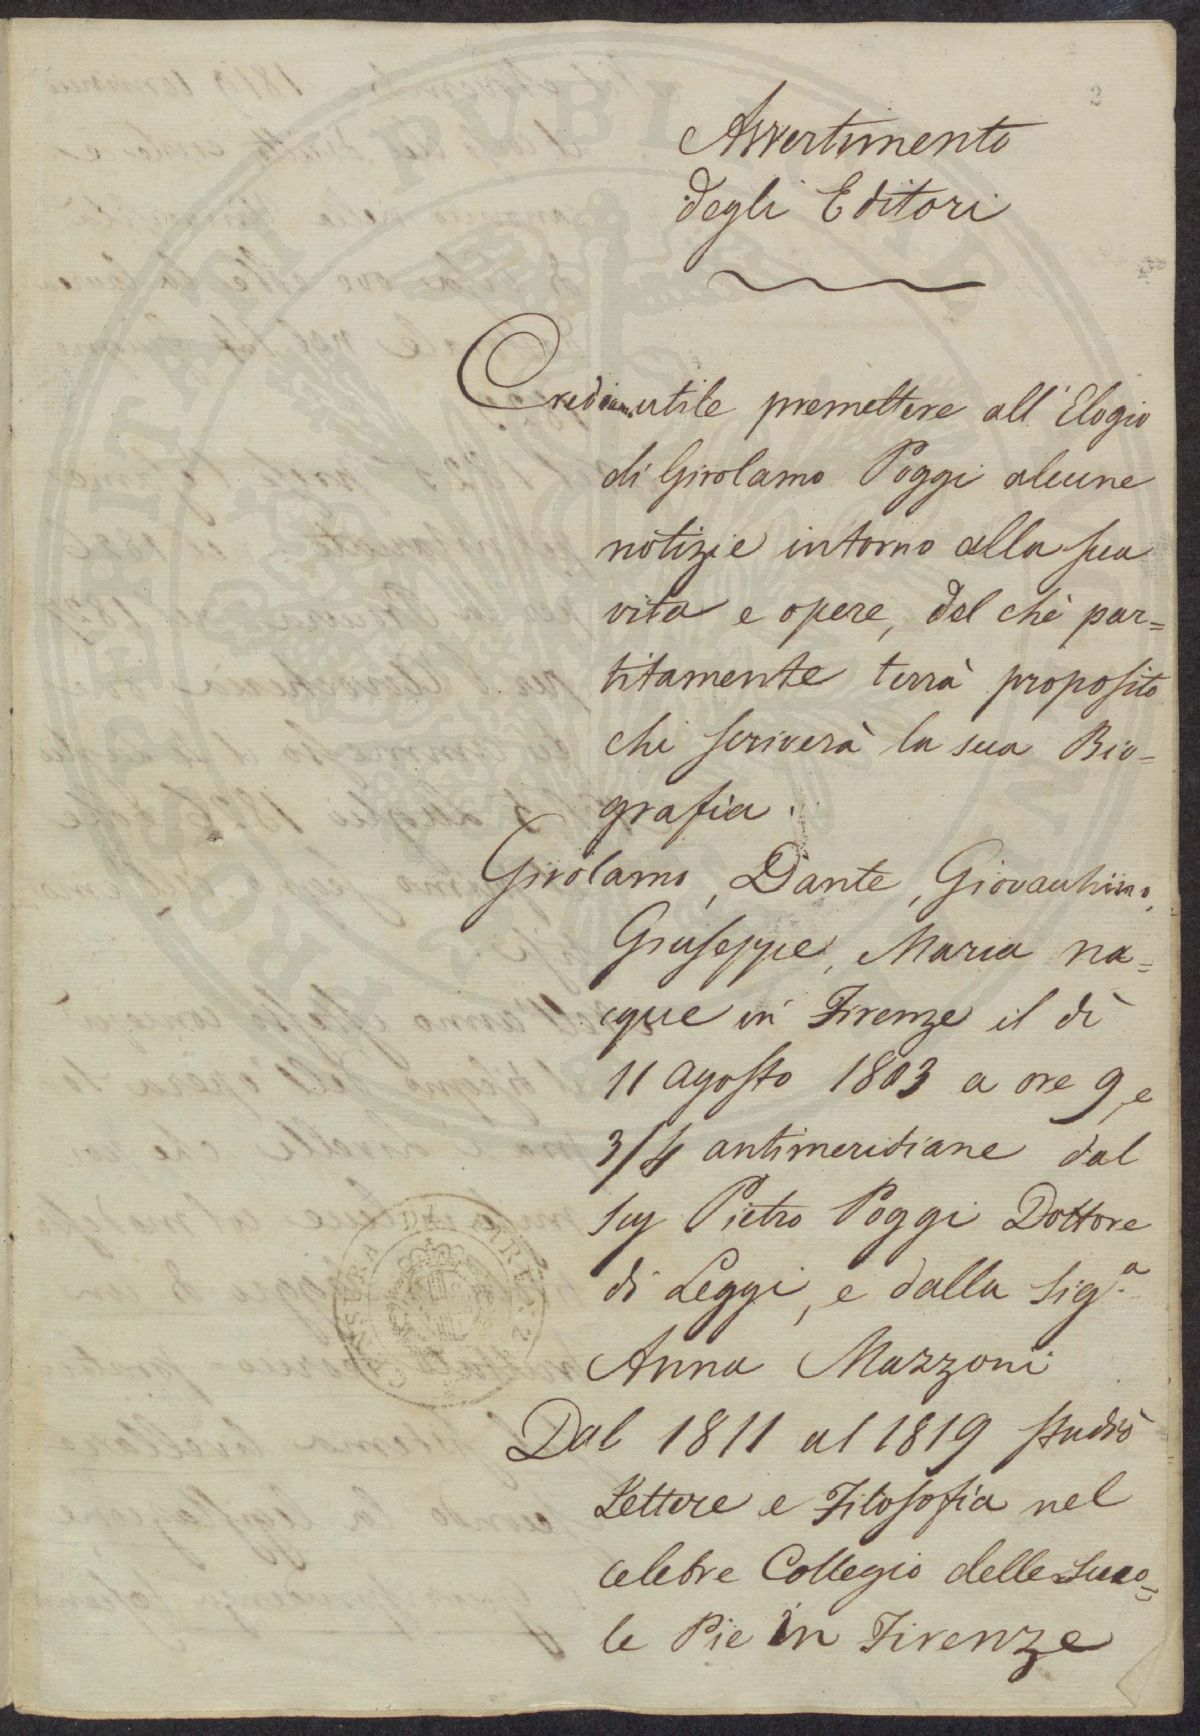 2
Avvertimento
degli Editori
Crediam utile premettere all'Elogio
di Girolamo Poggi alcune
notizie intorno alla sua
vita e opere, del chè par=
titamente terrà proposito
chi scriverà la sua Bio=
grafia.
Girolamo, Dante, Giovacchino,
Giuseppe, Maria na=
cque in Firenze il dì
11 agosto 1803 a ore 9, e
3/4 antimeridiane dal
Sig Pietro Poggi Dottore
di Leggi, e dalla Sig.a
Anna Mazzoni
Dal 1811 al 1819 studiò
Lettere e Filosofia nel
celebre Collegio delle Scuo=
le Pie in Firenze